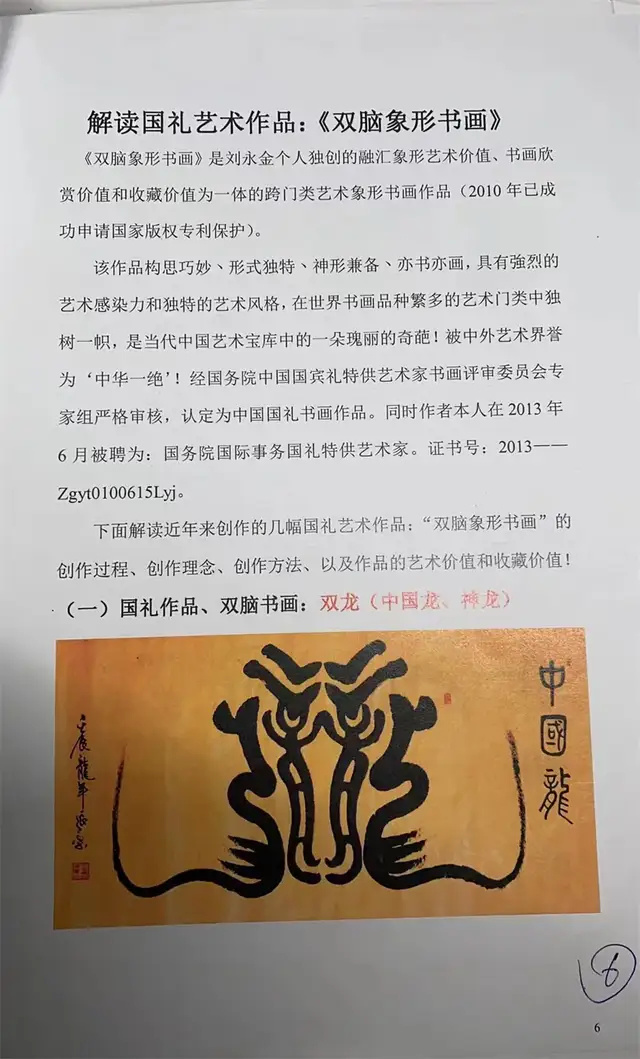 解读国礼艺术作品：《双脑象形书画》
《双脑象形书画》是刘永金个人独创的融汇象形艺术价值、书画欣
赏价值和收藏价值为一体的跨门类艺术象形书画作品（2010 年已成
功申请国家版权专利保护）。
该作品构思巧妙、形式独特、神形兼备、亦书亦画，具有強烈的
艺术感染力和独特的艺术风格，在世界书画品种繁多的艺术门类中独
树一帜，是当代中国艺术宝库中的一朵瑰丽的奇葩！被中外艺术界誉
为‘中华一绝’！经国务院中国国宾礼特供艺术家书画评审委员会专
家组严格审核，认定为中国国礼书画作品。同时作者本人在 2013 年
6 月被聘为：国务院国际事务国礼特供艺术家。证书号：2013——
Zgyt0100615Lyj。
下面解读近年来创作的几幅国礼艺术作品：“双脑象形书画”的
创作过程、创作理念、创作方法、以及作品的艺术价值和收藏价值！
（一）国礼作品、双脑书画：双龙（中国龙、神龙）
中國龍
壬辰龍年
6
6